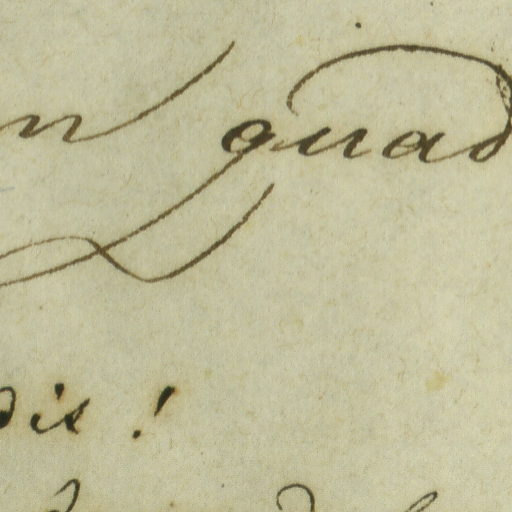 n quad
dis !